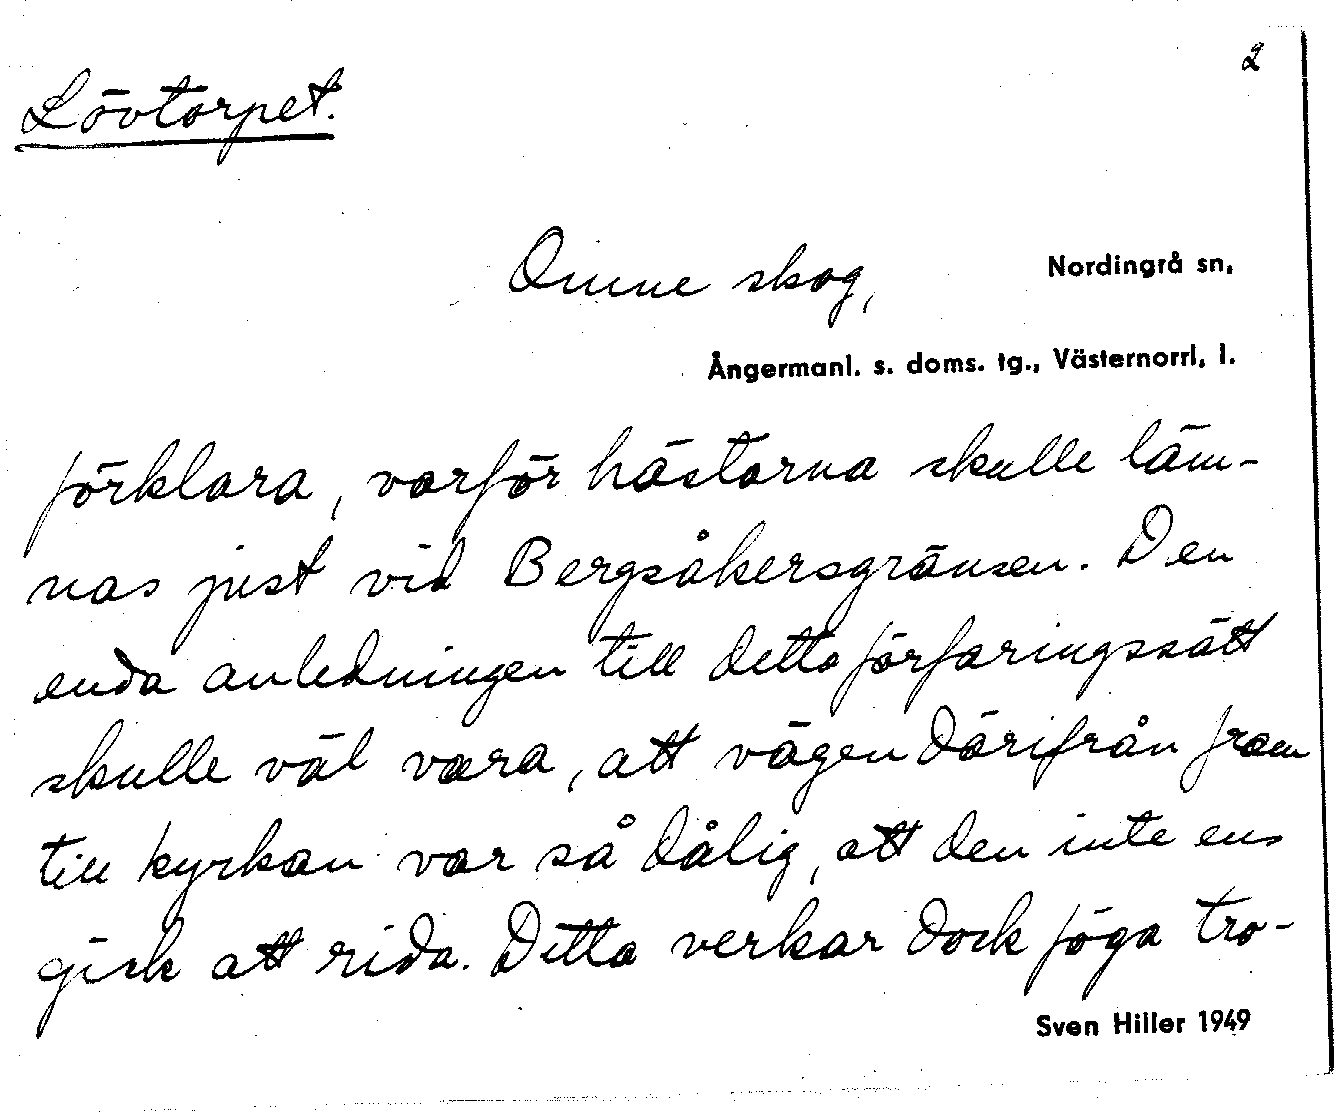 2
Lövtorpet.
Omne skog,
Nordingrå sn,
Ångermanl. s. doms. tg., Västernorrl, l.
förklara, varför hästarna skulle läm-
nas just vid Bergsåkersgränsen. Den
enda anledningen till detta förfaringssätt
skulle väl vara, att vägen därifrån fram
till kyrkan var så dålig, att den inte ens
gick att rida. Detta verkar dock föga tro-
Sven Hiller 1949